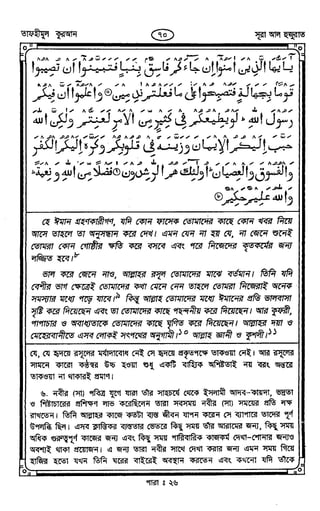 তাফহীমুল কুরআন ৭০ সূরা আল হুজুরাত
يٰٓاَيُّهَا الَّذِيْنَ اٰمَنُوْٓا اِنْ جَآءَكُمْ فَاسِقٌۢ بِنَبَاٍ فَتَبَيَّنُوْٓا اَنْ تُصِيْبُوْا
قَوْمًۢا بِجَهَالَةٍ فَتُصْبِحُوْا عَلٰى مَا فَعَلْتُمْ نٰدِمِيْنَ ۝ وَاعْلَمُوْٓا اَنَّ فِيْكُمْ
رَسُوْلَ اللّٰهِ ۚ لَوْ يُطِيْعُكُمْ فِيْ كَثِيْرٍ مِّنَ الْاَمْرِ لَعَنِتُّمْ وَلٰكِنَّ اللّٰهَ
حَبَّبَ اِلَيْكُمُ الْاِيْمَانَ وَزَيَّنَهٗ فِيْ قُلُوْبِكُمْ وَكَرَّهَ اِلَيْكُمُ الْكُفْرَ
وَالْفُسُوْقَ وَالْعِصْيَانَ ۚ اُولٰٓئِكَ هُمُ الرّٰشِدُوْنَ ۝ فَضْلًا مِّنَ اللّٰهِ وَنِعْمَةً ۚ
وَاللّٰهُ عَلِيْمٌ حَكِيْمٌ ۝
হে ঈমান গ্রহণকারীগণ, যদি কোন ফাসেক তোমাদের কাছে কোন খবর নিয়ে
আসে তাহলে তা অনুসন্ধান করে দেখ। এমন যেন না হয় যে, না জেনে শুনেই
তোমরা কোন গোষ্ঠীর ক্ষতি করে বসবে এবং পরে নিজেদের কৃতকর্মের জন্য
লজ্জিত হবে।৮
ভাল করে জেনে নাও, আল্লাহর রসূল তোমাদের মাঝে বর্তমান। তিনি যদি
বেশীর ভাগ ক্ষেত্রেই তোমাদের কথা মেনে নেন তাহলে তোমরা নিজেরাই অনেক
সমস্যার মধ্যে পড়ে যাবে।৯ কিন্তু আল্লাহ তোমাদের মধ্যে ঈমানের প্রতি ভালবাসা
সৃষ্টি করে দিয়েছেন এবং তা তোমাদের কাছে পছন্দনীয় করে দিয়েছেন। আর কুফরী,
পাপাচার ও অবাধ্যতাকে তোমাদের কাছে ঘৃণিত করে দিয়েছেন। আল্লাহর দয়া ও
মেহেরবানীতে এসব লোকই সৎপথের অনুগামী।১০ আল্লাহ জ্ঞানী ও কুশলী।১১
যে, যে হৃদয়ে রসূলের মর্যাদাবোধ নেই সে হৃদয়ে প্রকৃতপক্ষে তাকওয়া নেই। আর রসূলের
সামনে কারো কণ্ঠস্বর উচ্চ হওয়া শুধু একটি বাহ্যিক অশিষ্টতাই নয় বরং অন্তরে
তাকওয়া না থাকারই প্রমাণ।
৬. নবীর (সা) পবিত্র যুগে যারা তাঁর সাহচর্যে থেকে ইসলামী আদব-কায়দা, ভদ্রতা
ও শিষ্টাচারের প্রশিক্ষণ লাভ করেছিলেন তারা সবসময় নবীর (সা) সময়ের প্রতি লক্ষ
রাখতেন। তিনি আল্লাহর কাজে কতটা ব্যস্ত জীবন যাপন করেন সে ব্যাপারে তাদের পূর্ণ
উপলব্ধি ছিল। এসব ক্লান্তিকর ব্যস্ততার ভেতরে কিছু সময় তাঁর আরামের জন্য, কিছু সময়
অধিক গুরুত্বপূর্ণ কাজের জন্য এবং কিছু সময় পারিবারিক কাজকর্ম দেখা-শোনার জন্যও
অবশ্যই থাকা প্রয়োজন। এ জন্য তারা নবীর সাথে দেখা করার জন্য এমন সময় গিয়ে
হাজির হতো যখন তিনি ঘরের বাইরেই অবস্থান করতেন এবং কখনো যদি তাঁকে
পারা : ২৬